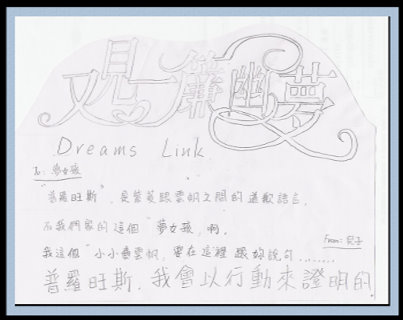 又見一簾幽夢
Dreams Link
To: 夢女孩
"普羅旺斯", 是紫菱跟雲帆之間的道歉語言,
而我們家的這個 "夢女孩" 啊,
From: 兒子
我這個 "小小費雲帆", 要在這裡跟妳說句........
普羅旺斯, 我會以行動來證明的